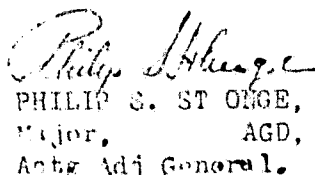 Philip S. St Onge
PHILIP S. ST ONGE,
Major, AGD,
Actg Adj General.